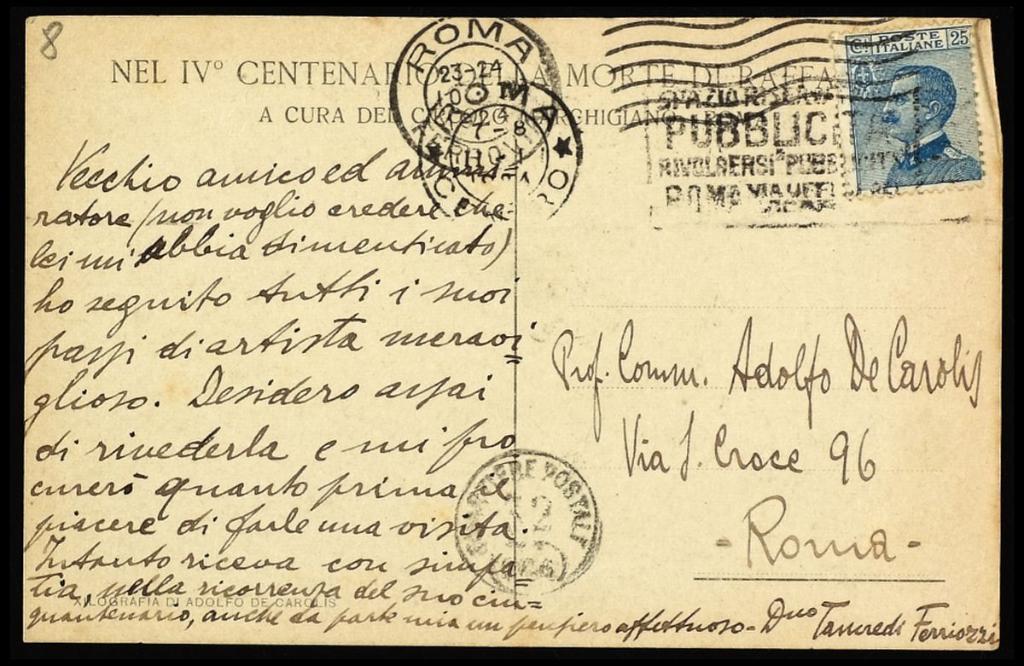 8
NEL IVº CENTENARIO DELLA MORTE DI RAFFA
A CURA DEL CHIGIANO
ROMA
23-24
ROMA
7-8
POSTE ITALIANE
Cmi 25
SPAZIO RISERVATO
PUBBLICITÀ
RIVOLGERSI
ROMA VIA UFFICI DEL VICARIO
Vecchio amico ed ammi
ratore (non voglio credere che
lei mi abbia dimenticato)
ho seguito tutti i suoi
passi di artista meravi
glioso. Desidero assai
di rivederla e mi pro
curerò quanto prima il
piacere di farle una visita.
Intanto riceva con simpa
tia, nella ricorrenza del suo cin=
quantenario, anche da parte mia un pensiero affettuoso - Dmo Tancredi Ferriozzi
Prof. Comm. Adolfo De Carolis
Via S. Croce 96
- Roma -
PORTIERE POSTALE
XILOGRAFIA DI ADOLFO DE CAROLIS